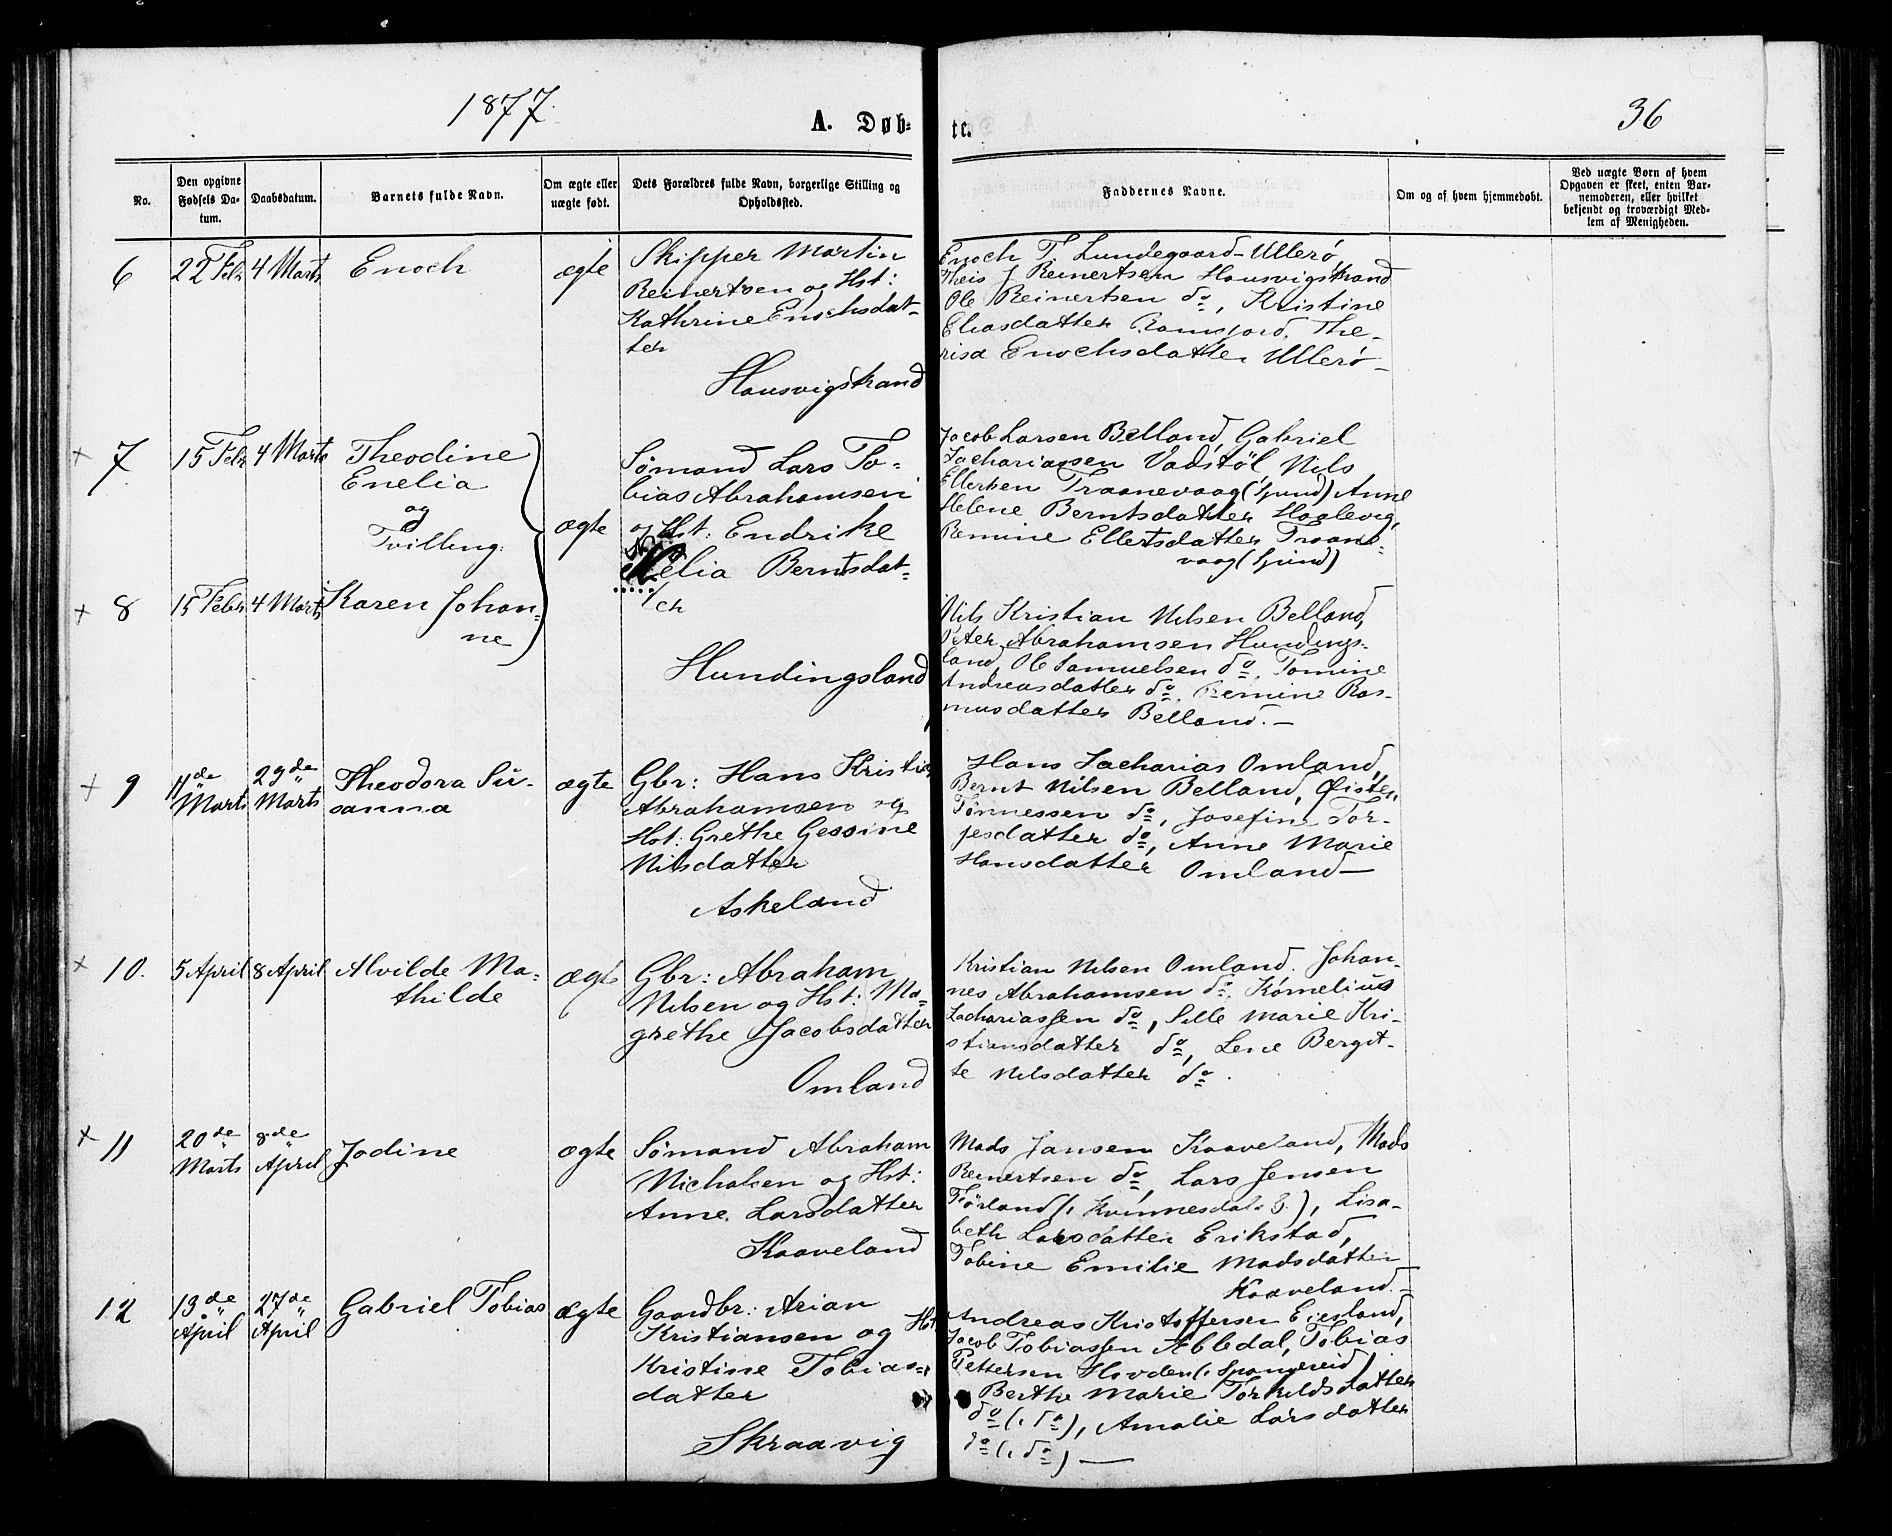 1877.
A. Døb-
te.
36
No.
Den opgivne Fødsels Da-tum.
Daabsdatum.
Barnets fulde Navn.
Om ægte eller uægte født.
Dets Forældres fulde Navn, borgerlige Stilling og Opholdssted.
Faddernes Navne.
Om og af hvem hjemmedøbt.
Ved uægte Born af hvem
Opgaven er skeet, enten Bar-
nemoderen, eller hvilket
bekjendt og troværdigt Med-
lem af Menigheden.
6
22 Febr
4 Marts
Enoch
ægte
Skipper Martin
Reinertsen og Hst:
Kathrine Enochsdat-
ter
Hausvigstrand
Enoch T. Lundegaard Ullerø
Theis J Reinertsen Hausvigstrand
Ole Reinertsen do, Kristine
Eliasdatter Ramsjord, The-
risa Enochsdatter Ullerø-
x 7
15 Febr
4 Marts
Theodine
Enelia
og
Tvilling:
ægte
Sømand Lars To-
bias Abrahamsen
og Hst: Endrike
Nelia Berntsdat-
ter
Hundingsland
Jacob Larsen Belland, Gabriel
Zachariassen Vadstøl Nils
Ellertsen Traanevaag (Spind) Anne
Helene Berntsdatter Haalevig,
Remine Ellertsdatter Traane-
vaag (Spind)
x 8
15 Febr
4 Marts
Karen Johan-
ne
Nils Kristian Nilsen Belland,
Peter Abrahamsen Hundings-
land, Ole Samuelsen do. Tomine
Andreasdatter do. Remine Ras-
musdatter Belland.-
x 9
11de Marts
29de Marts
Theodora Su-
sanna
ægte
Gbr: Hans Kristian
Abrahamsen og
Hst: Grethe Gessine
Nilsdatter
Askeland
Hans Zacharias Omland,
Bernt Nilsen Belland, Øisten
Tønnessen do, Josefine Tor-
jesdatter do, Anne Marie
Hansdatter Omland-
x 10.
5 April
8 April
Alvilde Ma-
thilde
ægte
Gbr: Abraham
Nilsen og Hst: Ma-
grethe Jacobsdatter
Omland
Kristian Nilsen Omland. Johan-
nes Abrahamsen do. Kornelius
Zachariassen do, Sille Marie Kri-
stiansdatter do, Lene Bergit-
te Nilsdatter do.
x 11
20de Marts
8de April
Jodine
ægte
Sømand Abraham
Michalsen og Hst:
Anne Larsdatter
Kaaveland
Mads Jansen Kaaveland, Mads
Reinertsen do, Lars Jensen
Førland (i Kvinnesdal S.), Lisa-
beth Larsdatter Erikstad,
Tobine Emilie Madsdatter
Kaaveland.-
12
13de April
27de April
Gabriel Tobias
ægte
Gaardbr: Arian
Kristiansen og Hst
Kristine Tobias-
datter
Skraavig
Andreas Kristoffersen Eiesland,
Jacob Tobiassen Abledal, Tobias
Pettersen Hovden (i Spangereid)
Berthe Marie Torkildsdatter
do (i do), Amalie Larsdatter
do (i do) -